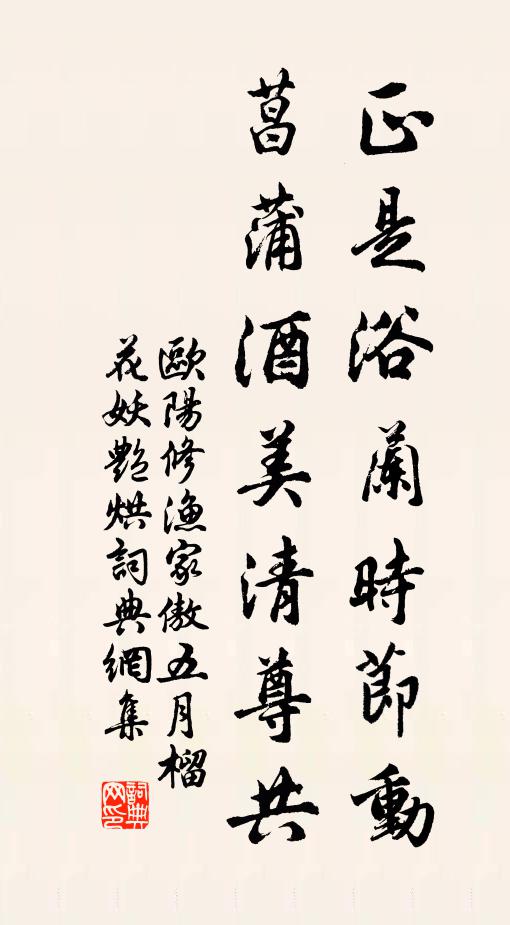 正是浴蘭時節動
菖蒲酒美清尊共
歐陽修漁家傲五月榴
花妖艷烘詞典網集
詞典
网印